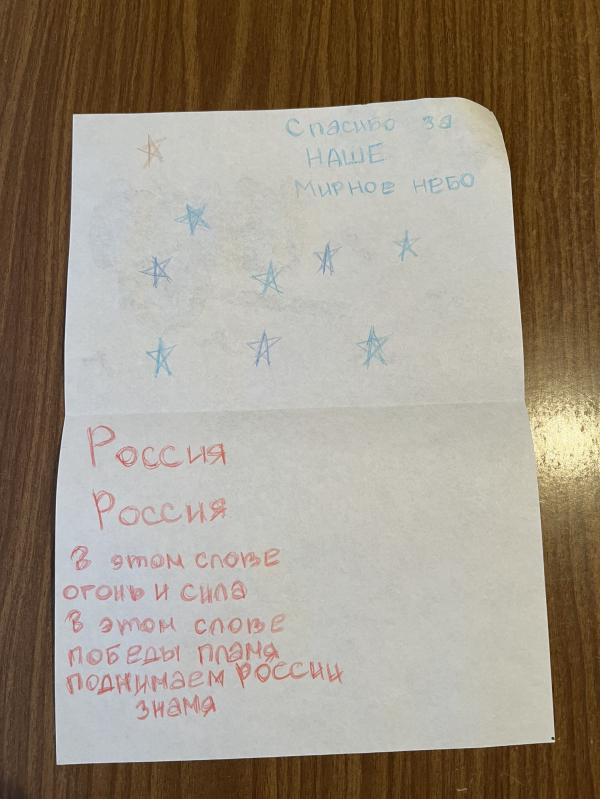 Спасибо за
НАШЕ
Мирное небо
Россия
Россия
В этом слове
огонь и сила
В этом слове
победы пламя
поднимаем России
знамя